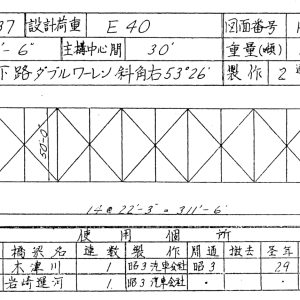 37 設計荷重 E 40 図面番号
'-6" 主構中心間 30' 重量(噸)
下路ダブルワーレン斜角右53°26' 製作 2
50'-0"
14@22'-3"=311'-6"
使用個所
橋梁名 連数 製作 開通 撤去 圣年
木津川 1 昭3汽車会社 昭3 29
岩崎運河 1 昭3汽車会社